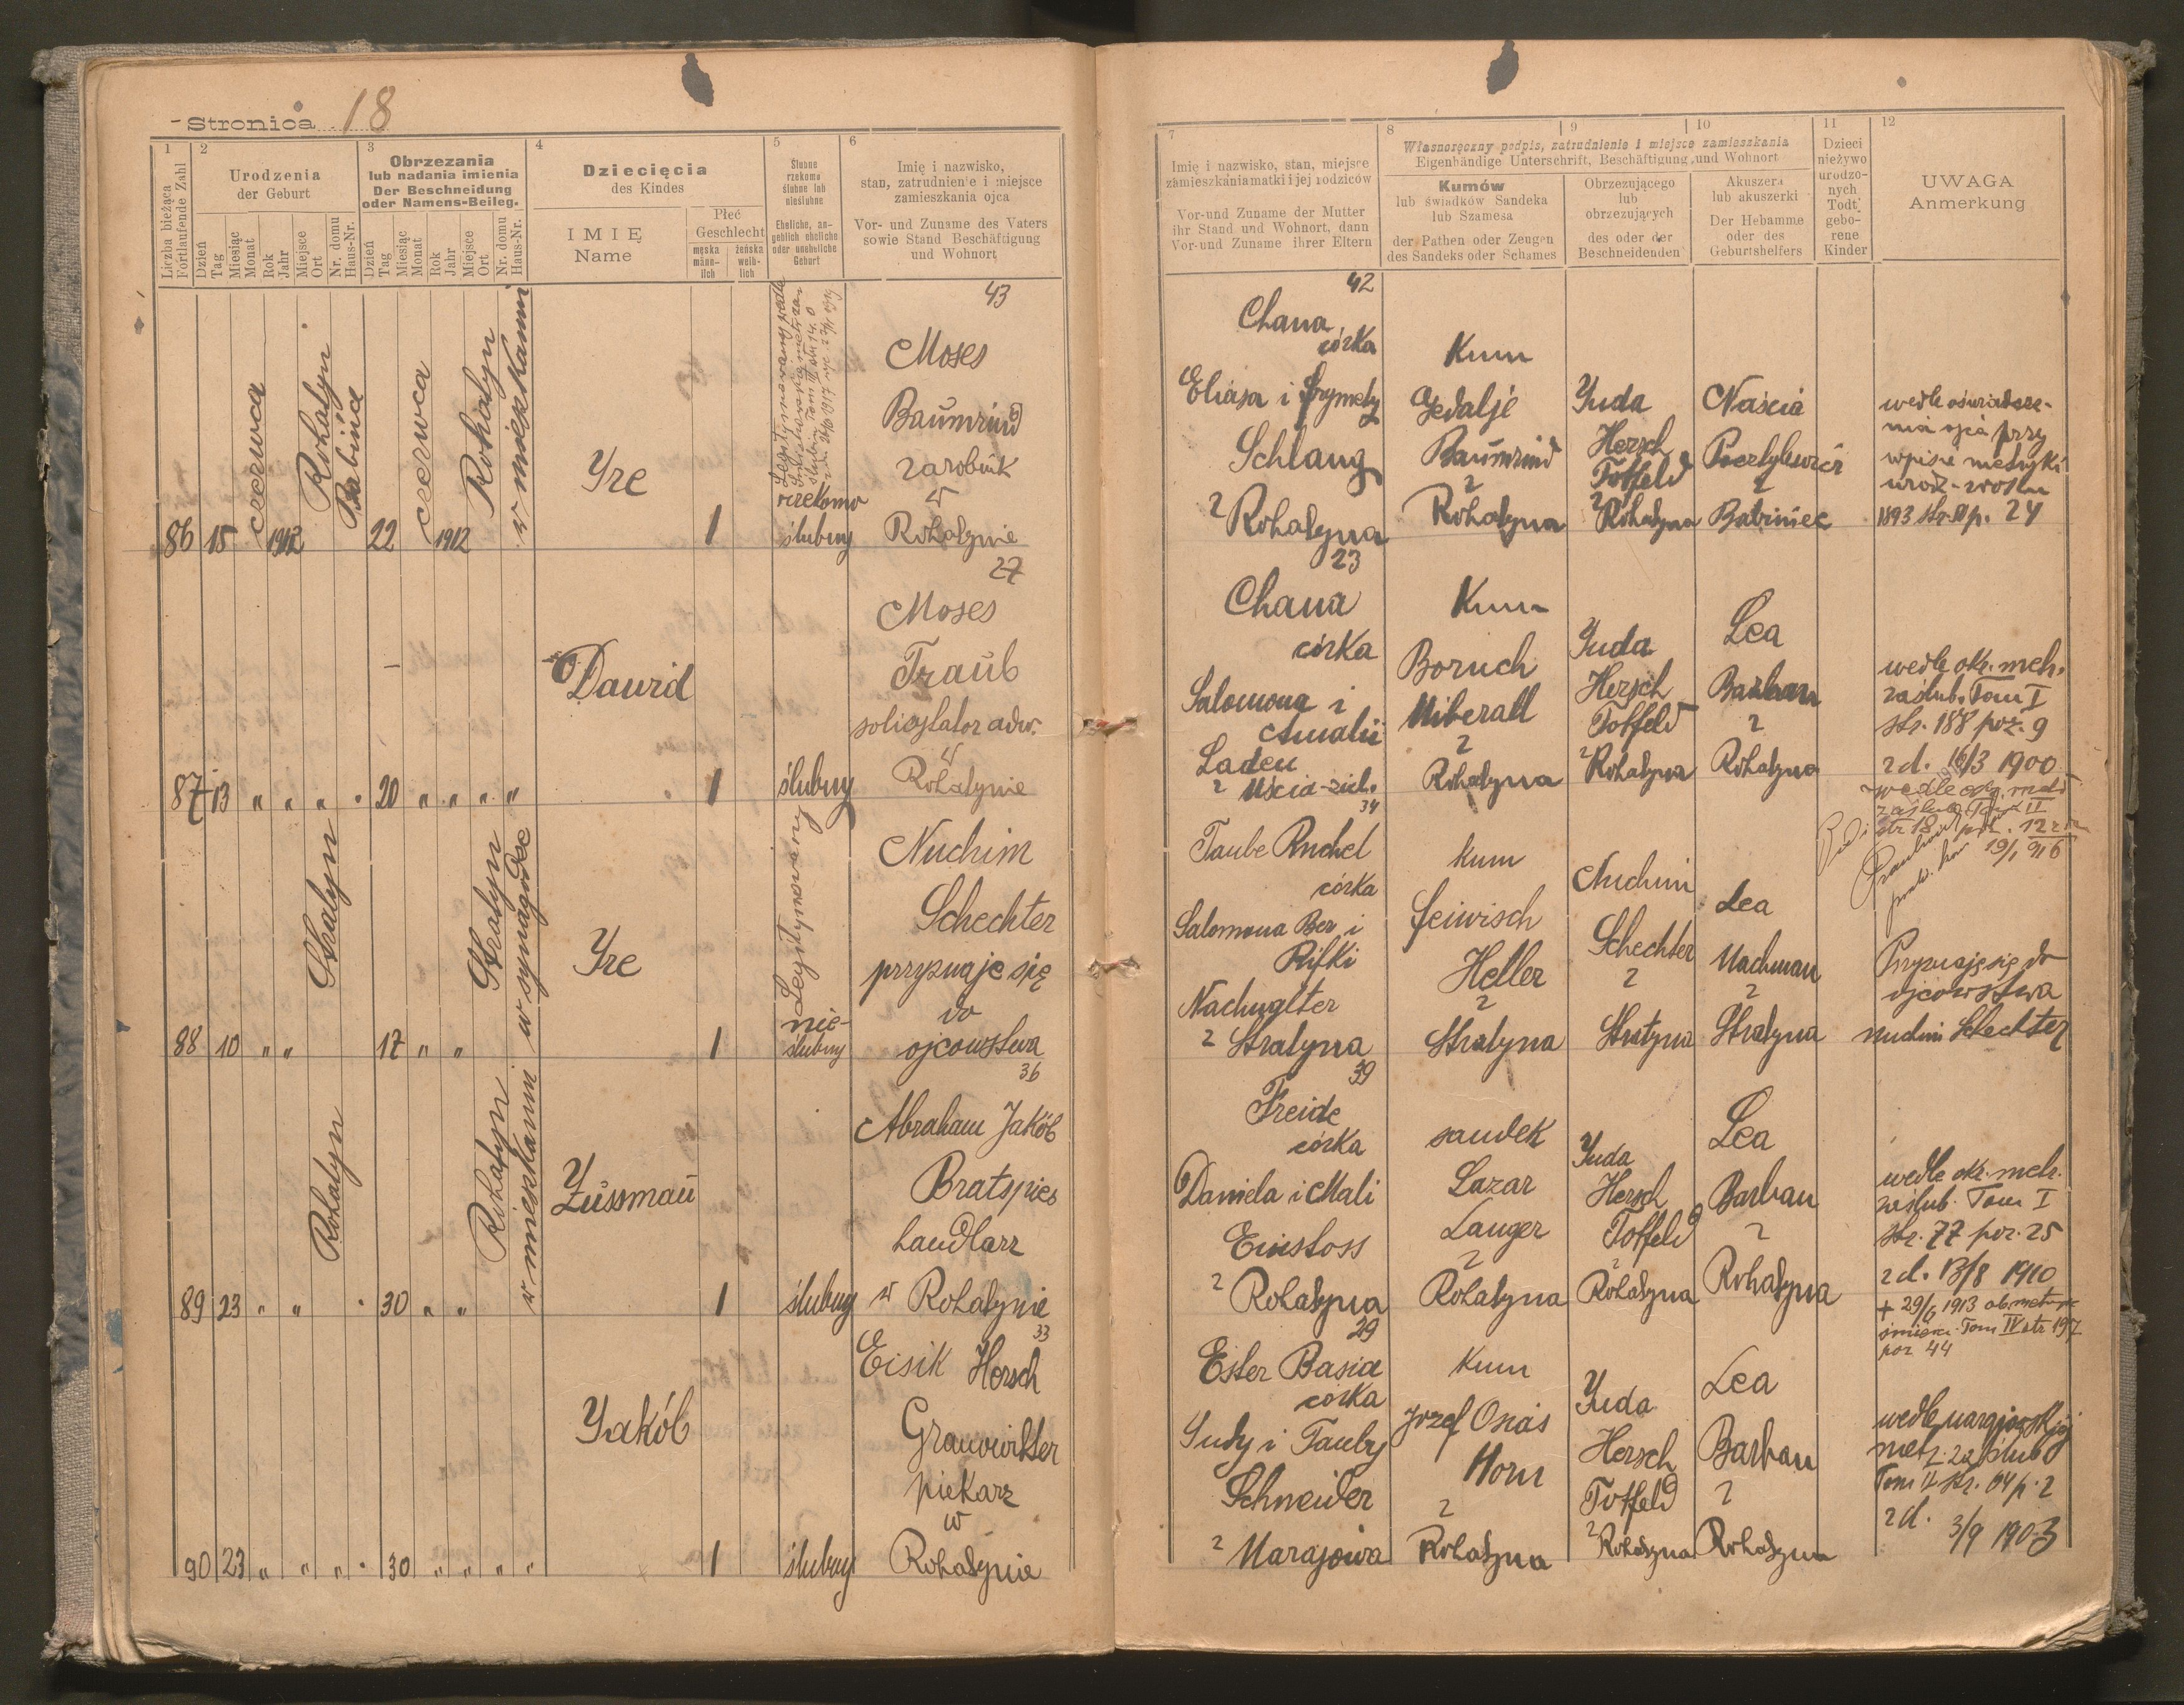 Stronica 18
1
Liczba bieżąca
Fortlaufende Zahl
2
Urodzenia
der Geburt
Dzień
Tag
Miesiąc
Monat
Rok
Jahr
Miejsce
Ort
Nr. domu
Haus-Nr.
3
Obrzezania
lub nadania imienia
Der Beschneidung
oder Namens-Beileg.
Dzień
Tag
Miesiąc
Monat
Rok
Jahr
Miejsce
Ort
Nr. domu
Haus-Nr.
4
Dziecięcia
des Kindes
IMIĘ
Name
Płeć
Geschlecht
męska
männ-
lich
żeńska
weib-
lich
5
Ślubne
rzekomo
ślubne lub
nieślubne
Eheliche, an-
geblich eheliche
oder uneheliche
Geburt
6
Imię i nazwisko,
stan, zatrudnienie i miejsce
zamieszkania ojca
Vor- und Zuname des Vaters
sowie Stand Beschäftigung
und Wohnort
7
Imię i nazwisko, stan, miejsce
zamieszkania matki i jej rodziców
Vor-und Zuname der Mutter
ihr Stand und Wohnort, dann
Vor-und Zuname ihrer Eltern
8
9
10
Własnoręczny podpis, zatrudnienie i miejsce zamieszkania
Eigenhändige Unterschrift, Beschäftigung und Wohnort
Kumów
lub świadków Sandeka
lub Szamesa
der Pathen oder Zeugen
des Sandeks oder Schames
Obrzezującego
lub
obrzezujących
des oder der
Beschneidenden
Akuszera
lub akuszerki
Der Hebamme
oder des
Geburtshelfers
11
Dzieci
nieżywo
urodzo-
nych
Todt
gebo-
rene
Kinder
12
UWAGA
Anmerkung
86 15 czerwca 1912 Rohatyn Babińce
22 czerwca 1912 Rohatyn w mieszkaniu
Ire
1
rzekomo
ślubny
43
Moses
Baumrind
zarobnik
w
Rohatynie
42
Chana
córka
Eliasa i Frymety
Schlang
z Rohatyna
Kum
Gedalje
Baumrind
z
Rohatyna
Juda
Hersch
Toffeld
z Rohatyna
Naścia
z
Babiniec
wedle oświadcze-
nia ojca przy
wpisie metryki
1893 p. 24
87 13 " " " "
20 " " " "
Dawid
1
ślubny
27
Moses
Traub
solicytator adw.
w
Rohatynie
23
Chana
córka
Salomona i
Amalii
Laden
z Uścia-ziel.
Kum
Boruch
Uiberall
z
Rohatyna
Juda
Hersch
Toffeld
z Rohatyna
Lea
Barban
z
Rohatyna
wedle okr. metr.
zaślub. Tom I
str. 188 poz. 9
z d. 16/3 1900
88 10 " " Stratyn
17 " " Stratyn w synagodze
Ire
1
Legitymowany
nie-
ślubny
Nuchim
Schechter
przyznaje się
do
ojcowstwa
34
Taube Ruchel
córka
Salomona Ber i
Rifki
Nachwalter
z Stratyna
kum
Feiwisch
Heller
z
Stratyna
Nuchim
Schechter
z
Stratyna
Lea
Nachman
z
Stratyna
zaślub Tom II
str 18 poz. 12
19/1 916
Przyznaję się do
ojcowstwa
Nuchim Schechter
89 23 " " Rohatyn
30 " " Rohatyn w mieszkaniu
Züssman
1
ślubny
36
Abraham Jakób
Bratspies
handlarz
w Rohatynie
39
Freide
córka
Daniela i Mali
Einstoss
z Rohatyna
sandek
Lazar
Langer
z
Rohatyna
Juda
Hersch
Toffeld
z
Rohatyna
Lea
Barban
z
Rohatyna
wedle okr. metr.
zaślub. Tom I
str. 77 poz. 25
z d. 13/8 1910
+ 29/6 1913
Tom IV str 197
poz 44
90 23 " " " "
30 " " " "
Jakób
1
ślubny
33
Eisik Hersch
Granowitter
piekarz
w
Rohatynie
29
Ester Basia
córka
Judy i Tauby
Schneider
z Narajowa
Kum
Josef Osias
Horn
z
Rohatyna
Juda
Hersch
Toffeld
z Rohatyna
Lea
Barban
z
Rohatyna
wedle narajowskiej
metr. zaślub
Tom II str. 04 p. 2
z d. 3/9 1903